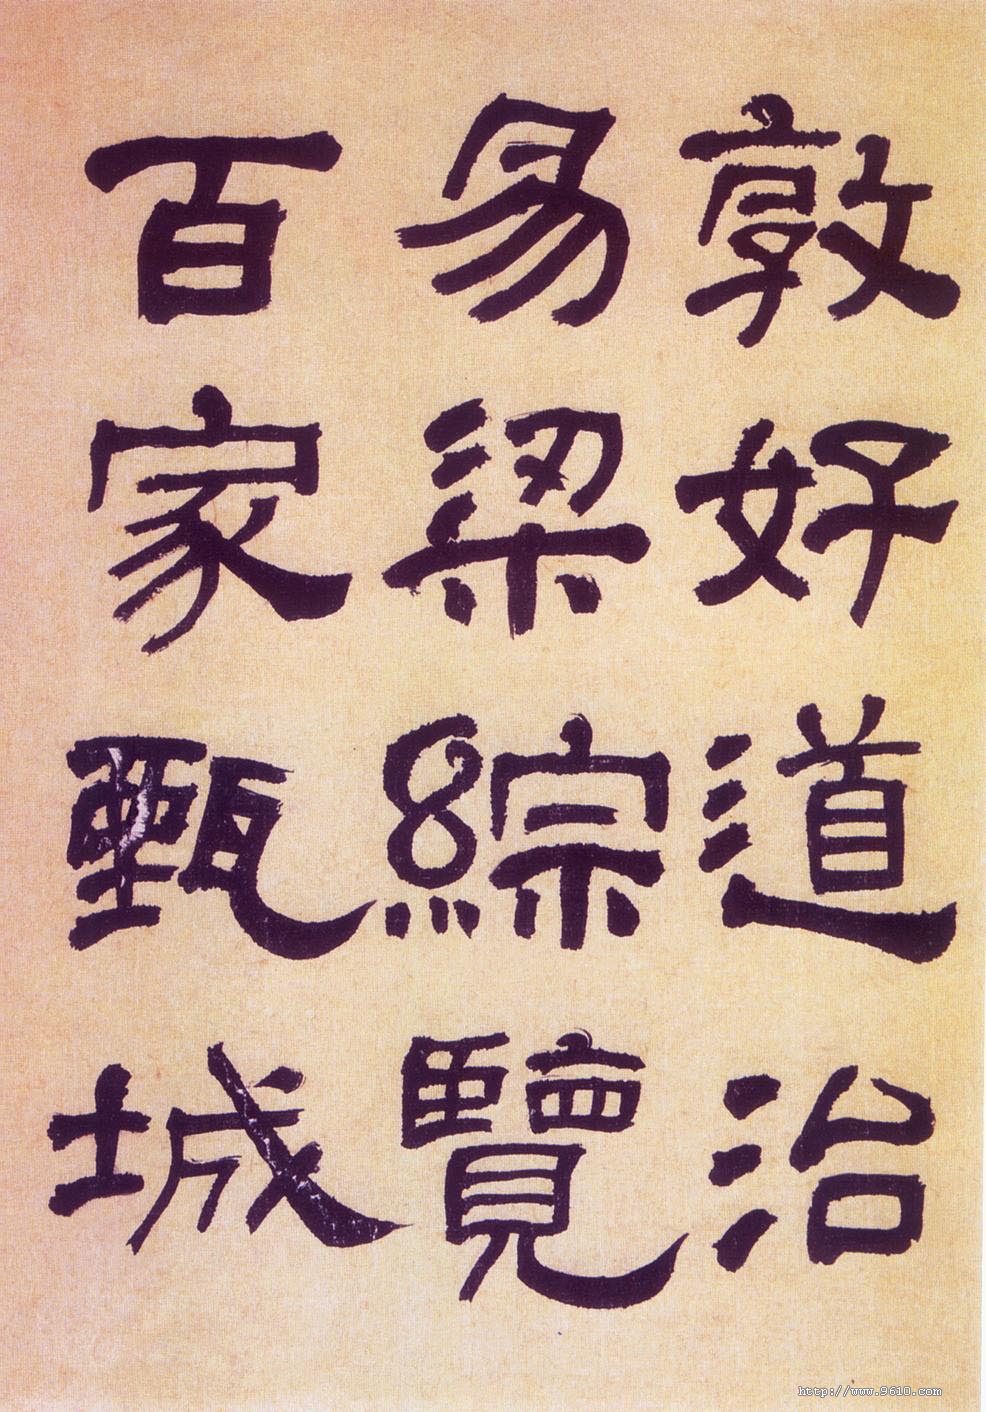 敦好道治
易梁綜覽
百家甄城
http://www.9610.com